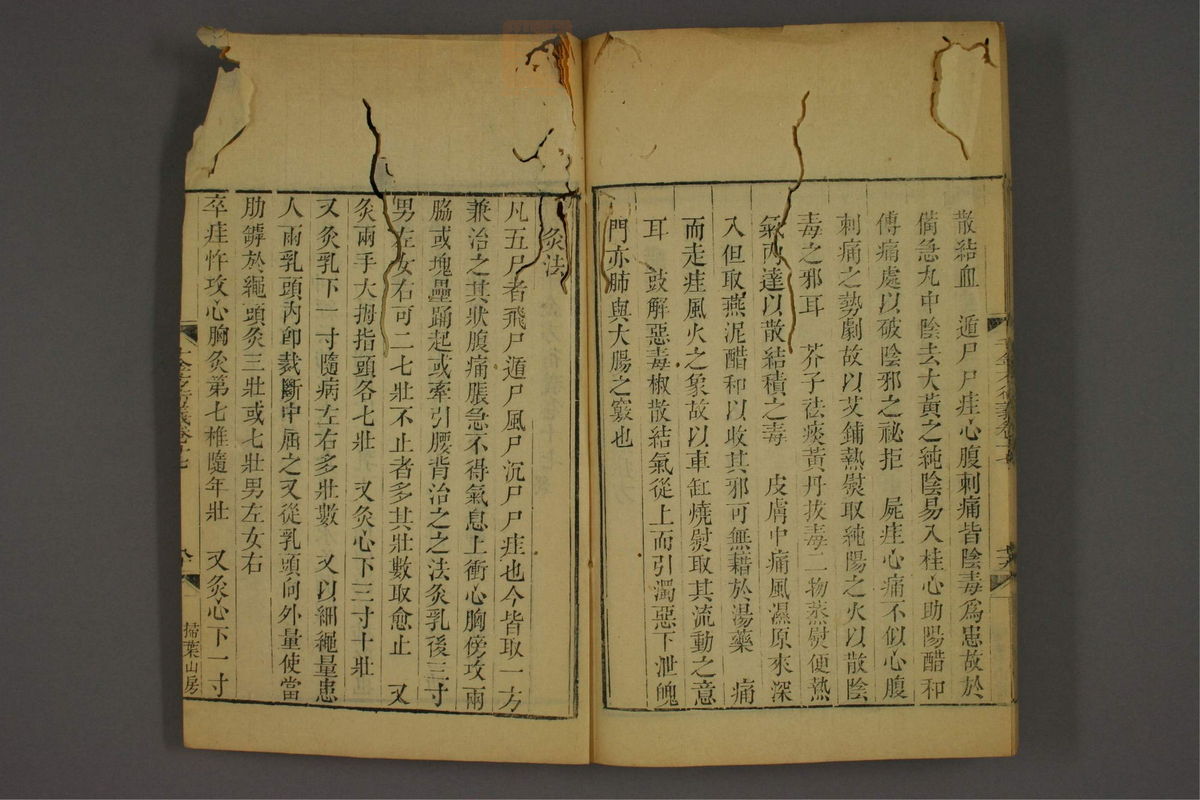 散結血　遁尸尸疰心腹刺痛皆陰毒爲患故於
備急九中陰去大黃之純陰易入桂心助陽醋和
傅痛處以破陰邪之祕拒　屍疰心痛不似心腹
刺痛之勢劇故以艾鋪熱熨取純陽之火以散陰
毒之邪耳　芥子祛痰黃丹拔毒二物蒸熨便熱
氣內達以散結積之毒　皮膚中痛風濕原來深
入但取燕泥醋和以收其邪可無藉於湯藥　痛
而走疰風火之象故以車缸燒熨取其流動之意
耳　豉解惡毒椒散結氣從上而引濁惡下泄魄
門亦肺與大腸之竅也
灸法
凡五尸者飛尸遁尸風尸沉尸尸疰也今皆取一方
兼治之其狀腹痛脹急不得氣息上衝心胸傍攻兩
脇或塊壘踊起或牽引腰背治之之法灸乳後三寸
男左女右可二七壯不止者多其壯數取愈止　又
灸兩手大拇指頭各七壯　又灸心下三寸十壯
又灸乳下一寸隨病左右多壯數　又以細繩量患
人兩乳頭內卽裁斷中屈之又從乳頭向外量使當
肋罅於繩頭灸三壯或七壯男左女右
卒疰忤攻心胸灸第七椎隨年壯　又灸心下一寸
千金方衍義卷十七
八
掃葉山房